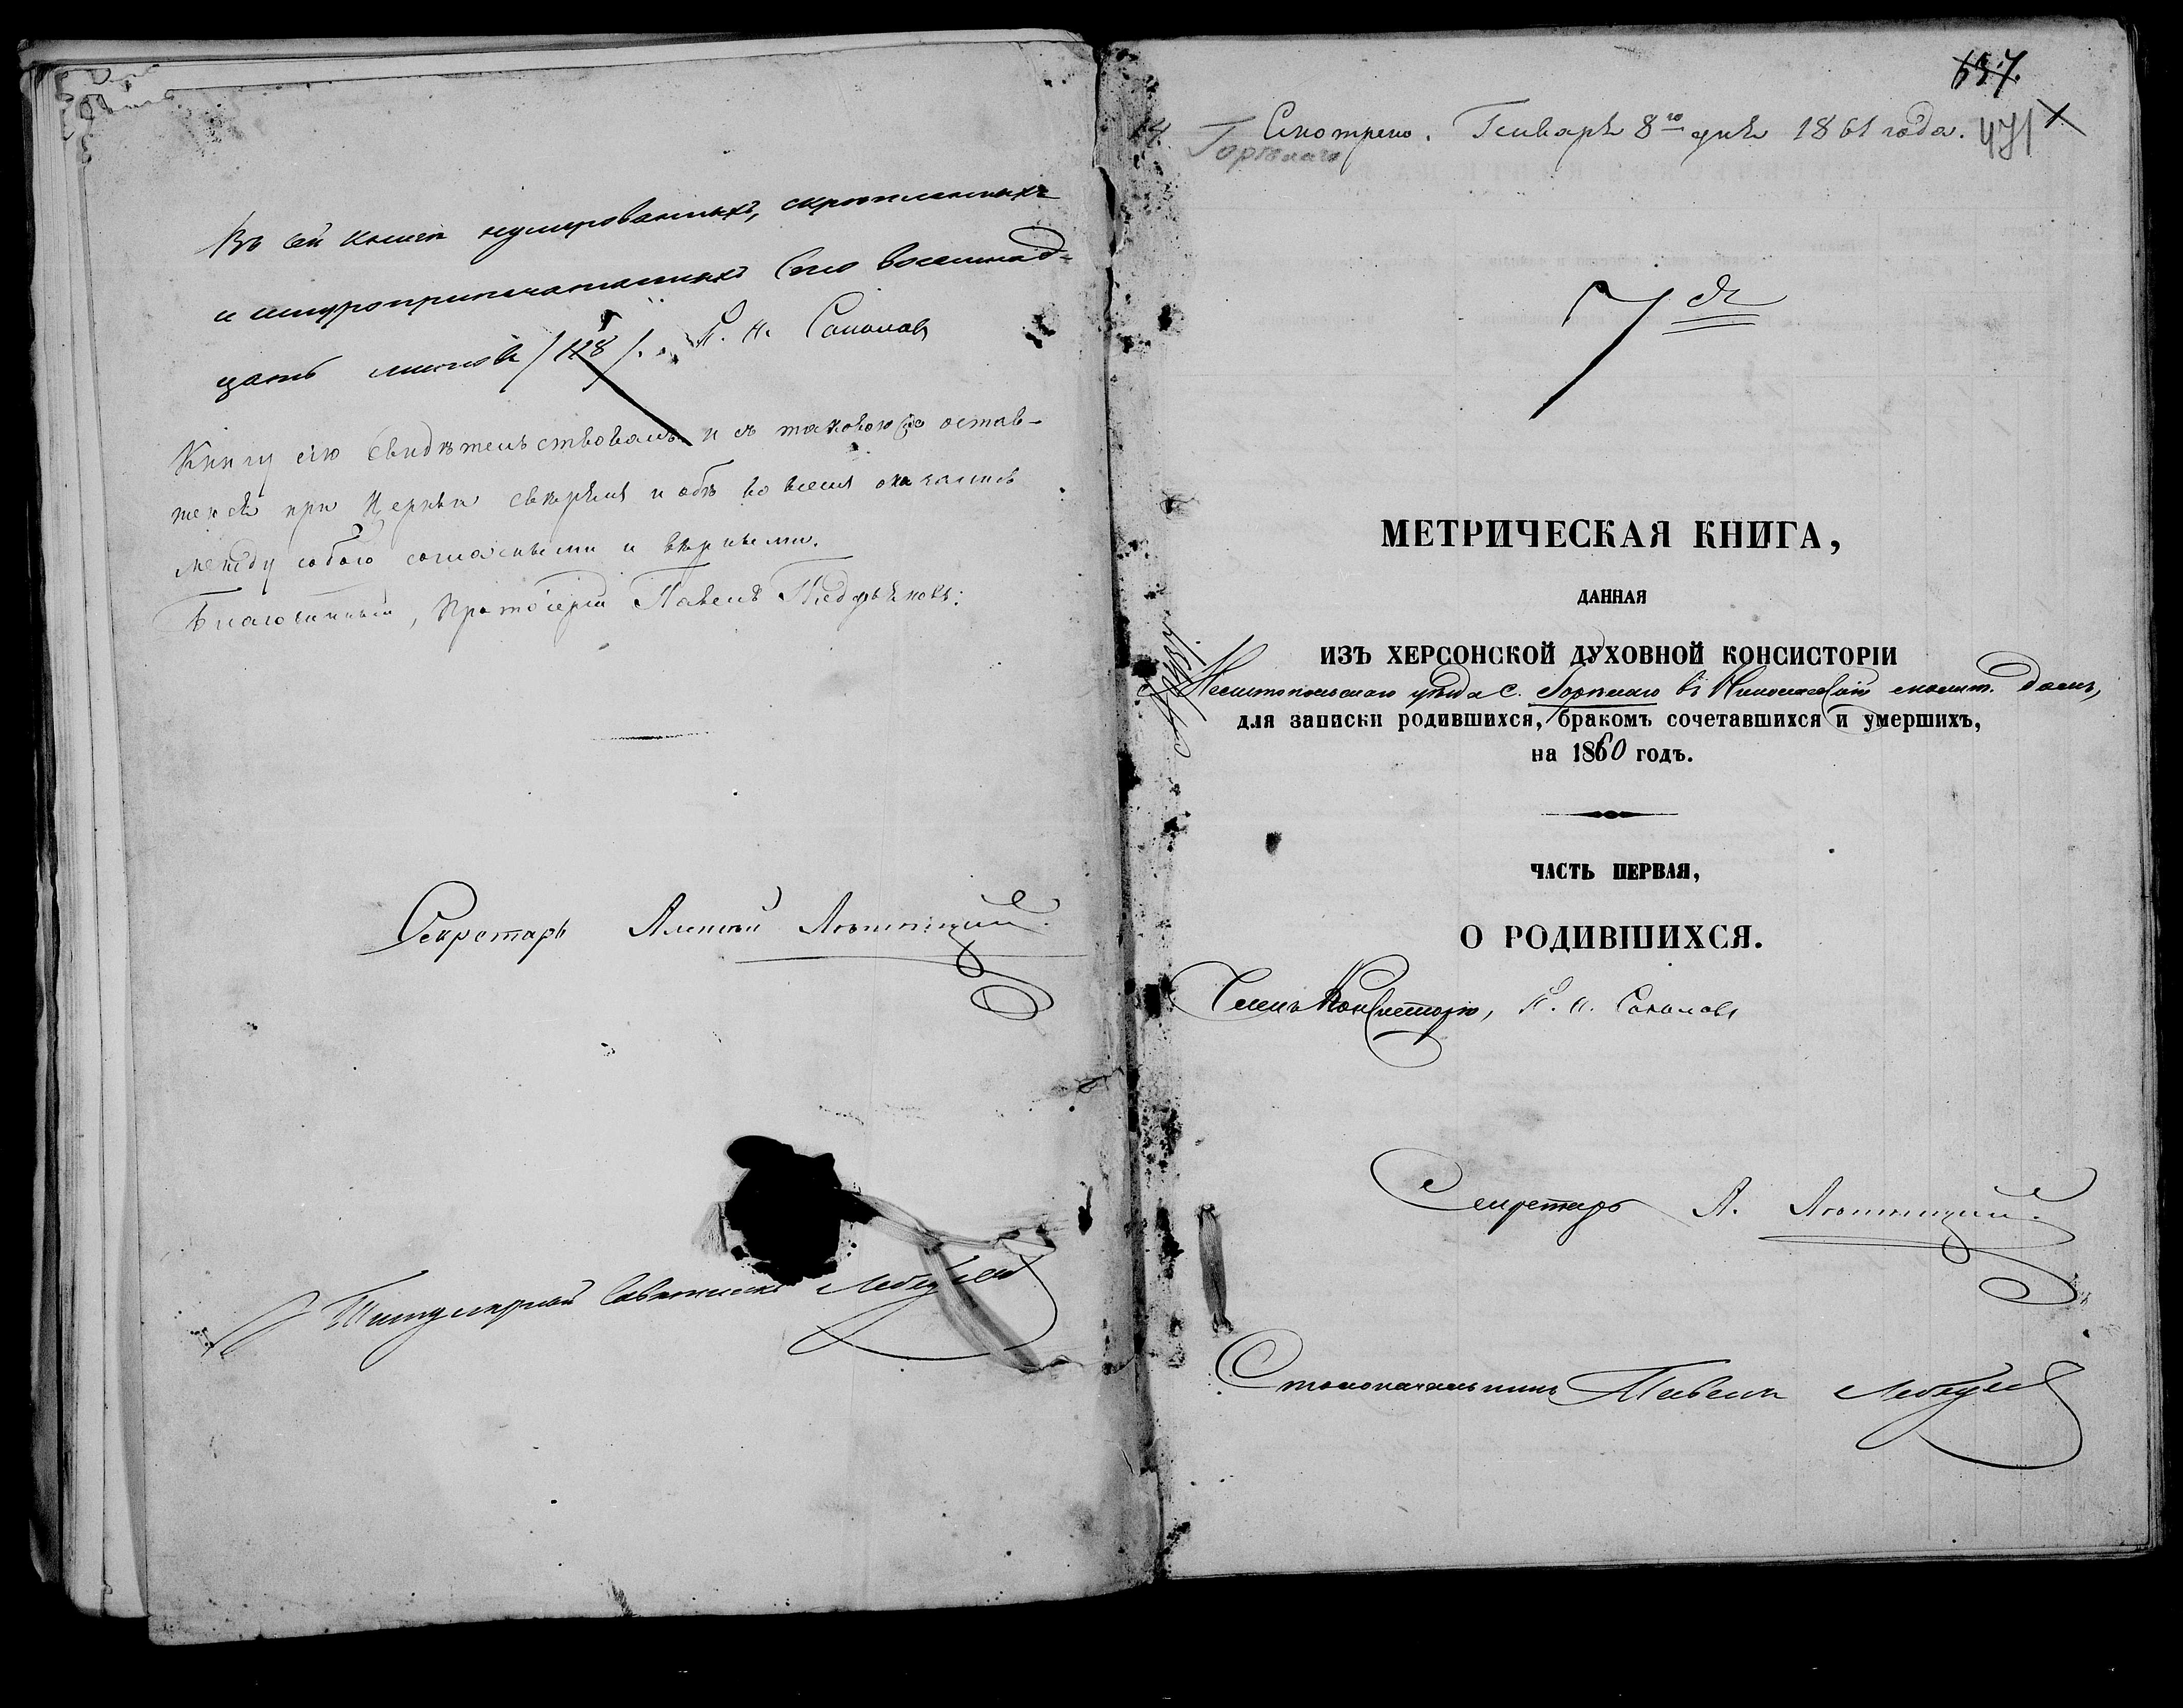 Въ сей книгѣ нумерованныхъ, скрѣпленныхъ
и шнуроприпечатанныхъ сто восемнад-
цать листовъ /118/. П. И. Соколовъ
Книгу сію свидѣтельствовалъ и съ таковою же остав-
шеюся при Церкви свѣрялъ и обѣ во всемъ оказались
между собою согласными и вѣрными.
Благочинный, Протоіерей Павелъ
Секретарь Алексѣй
Титулярный Совѣтникъ
637.
Смотрено. Генваря 8го дня 1861 года. 471
Горѣлаго
7я
МЕТРИЧЕСКАЯ КНИГА,
ДАННАЯ
ИЗЪ ХЕРСОНСКОЙ ДУХОВНОЙ КОНСИСТОРІИ
уѣзда с. Горѣлаго въ Николаевскій молит. домъ,
для записки родившихся, бракомъ сочетавшихся и умершихъ,
на 1860 годъ.
ЧАСТЬ ПЕРВАЯ,
О РОДИВШИХСЯ.
Членъ Консисторіи, П. И. Соколовъ
Секретарь А.
Столоначальникъ Павелъ